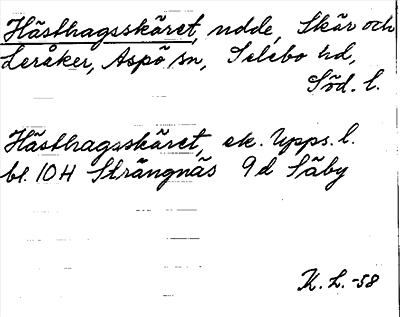 Hästhagsskäret, udde, Skär och
Leråker, Aspö sn, Selebo hd,
Söd. l.
Hästhagsskäret, ek. Upps. l.
bl. 10H Strängnäs 9d Säby
K. L. -58